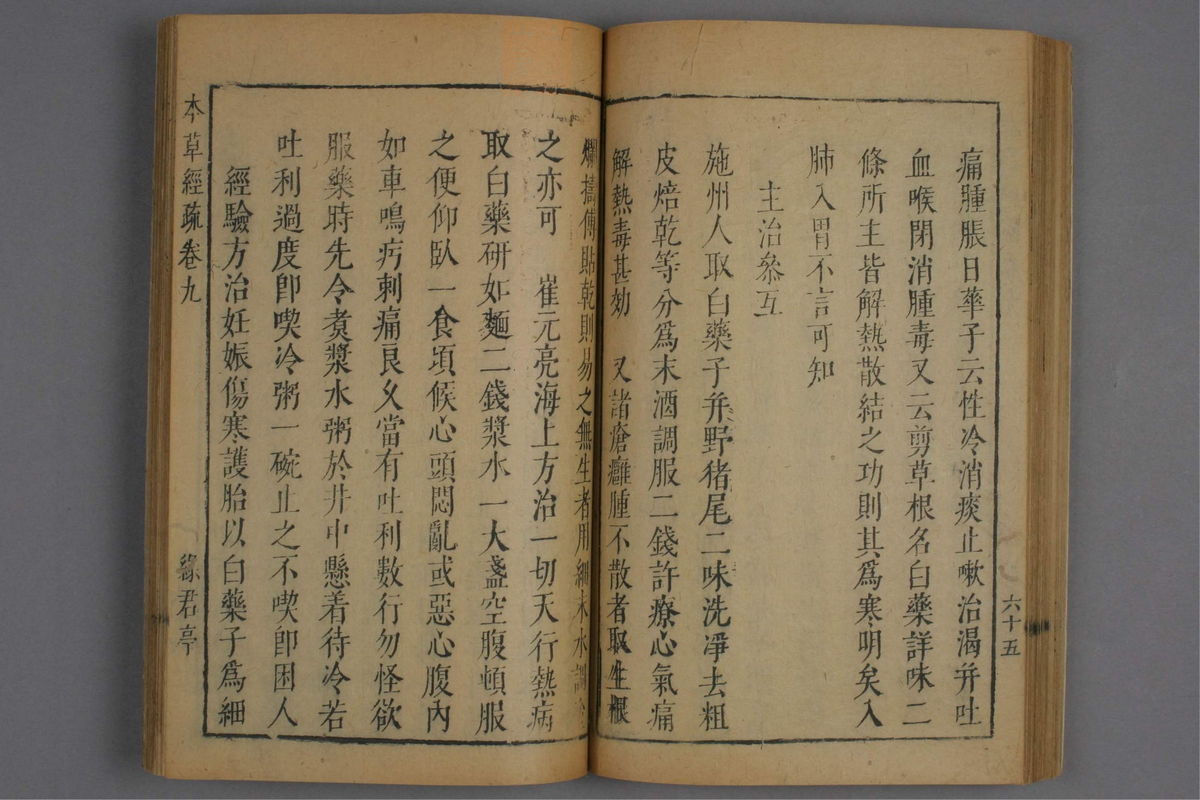 痛腫脹日華子云性冷消痰止嗽治渴并吐
血喉閉消腫毒又云剪草根名白藥詳味二
條所主皆解熱散結之功則其爲寒明矣入
肺入胃不言可知
主治叅互
施州人取白藥子并野猪尾二味洗淨去粗
皮焙乾等分爲末酒調服二錢許療心氣痛
解熱毒甚効 又諸瘡癰腫不散者取生根
爛擣傅貼乾則易之無生者用細末水調
之亦可 崔元亮海上方治一切天行熱病
取白藥研如麵二錢漿水一大盞空腹頓服
之便仰臥一食頃候心頭悶亂或惡心腹內
如車鳴疞刺痛良久當有吐利數行勿怪欲
服藥時先令煑漿水粥於井中懸着待冷若
吐利過度卽喫冷粥一碗止之不喫卽困人
經驗方治妊娠傷寒護胎以白藥子爲細
本草經疏卷九
綠君亭
六十五